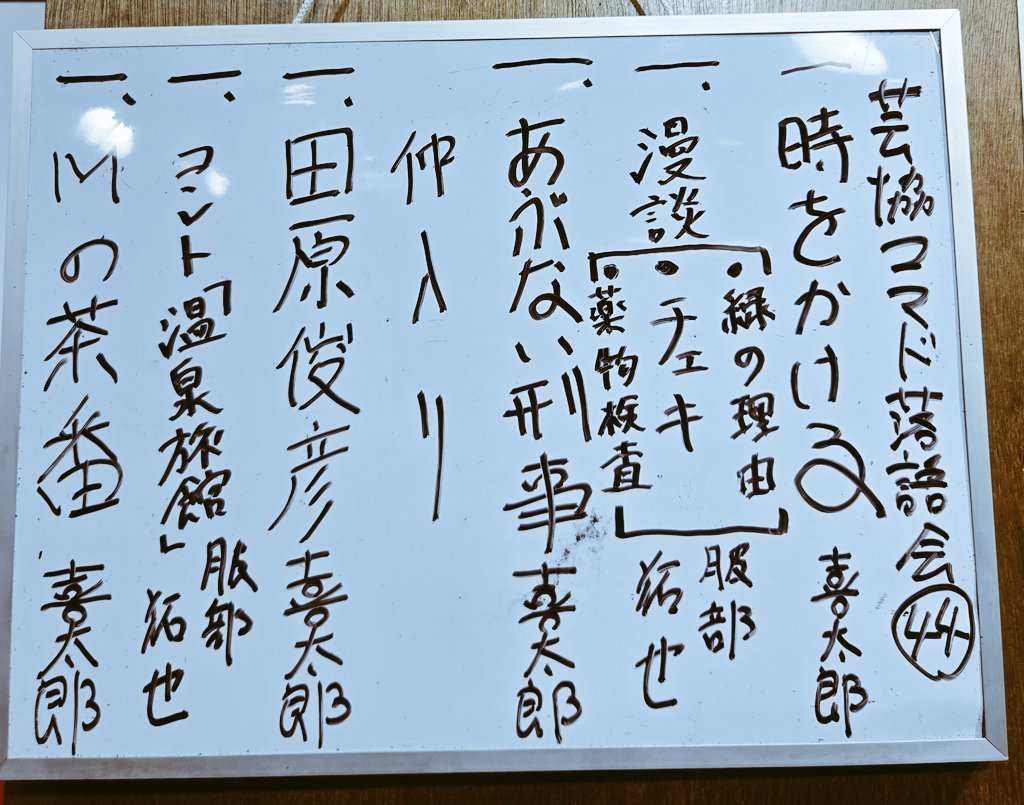 芸協コマド落語会㊹
一 時をかける 喜太郎
一、漫談
・緑の理由
・チェキ
・薬物検査
服部
拓也
一、あぶない刑事 喜太郎
仲入り
一、田原俊彦 喜太郎
一、コント「温泉旅館」
服部
拓也
一、川の茶番 喜太郎